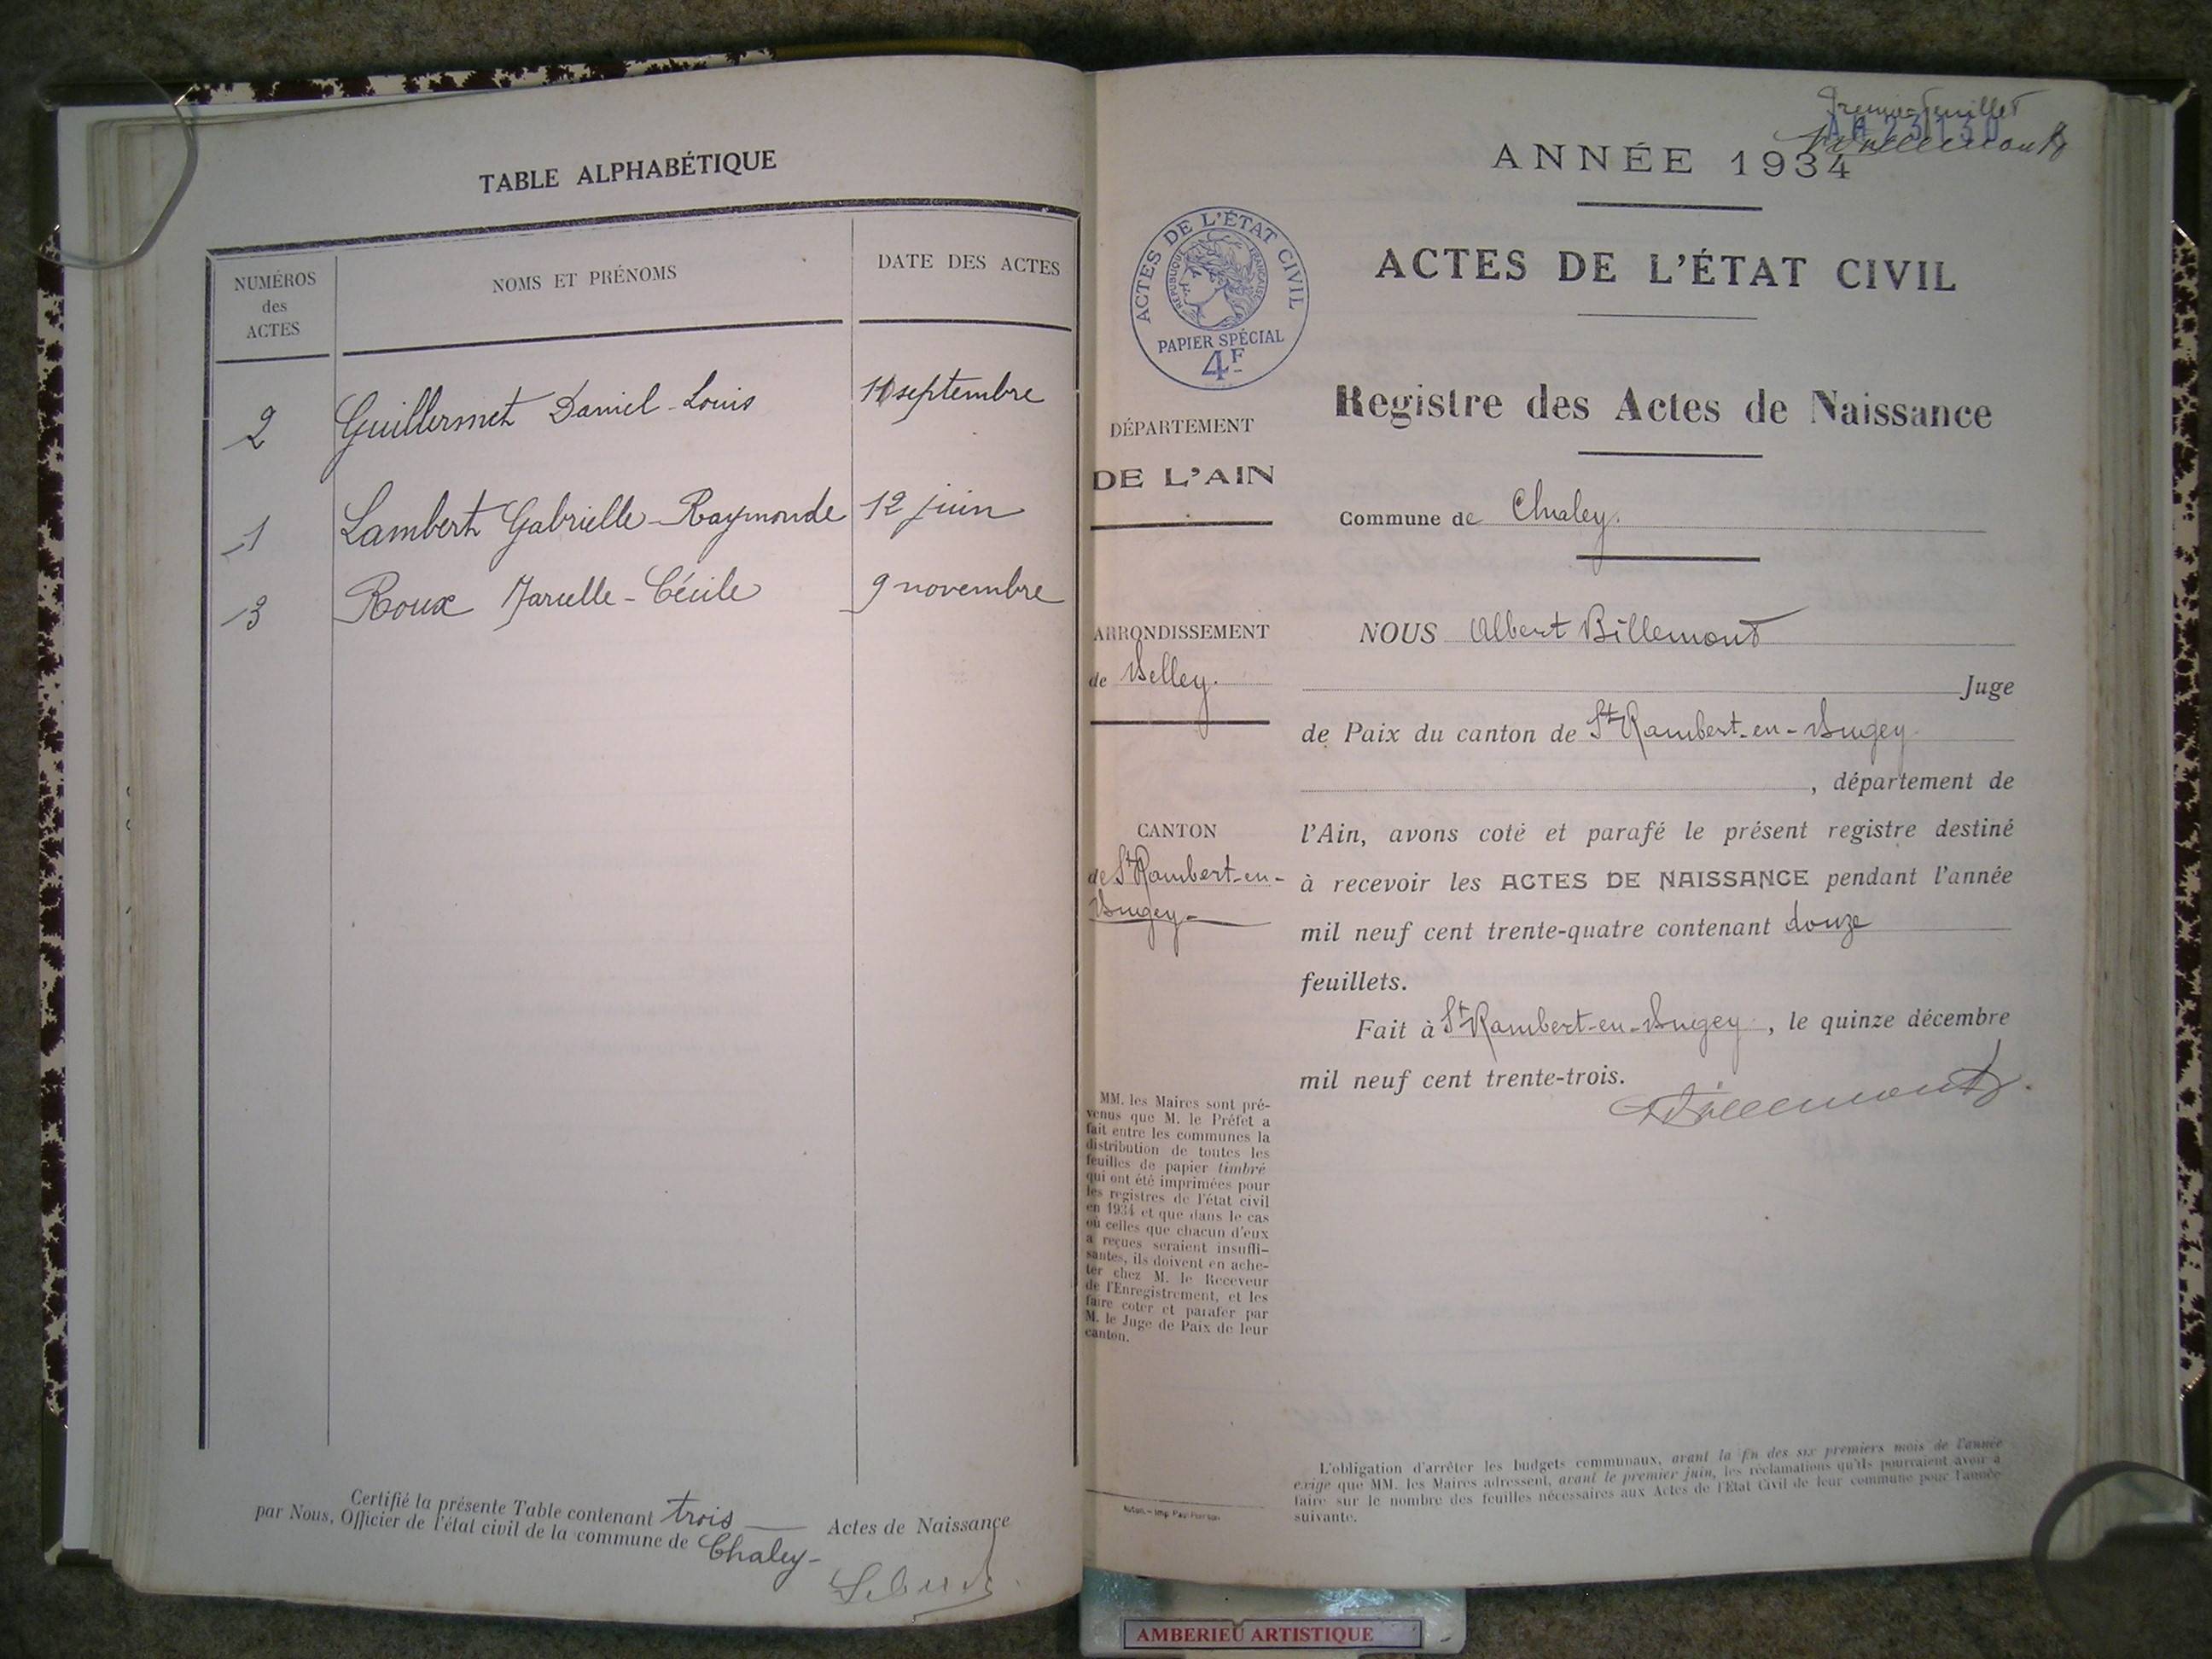 TABLE ALPHABÉTIQUE
NUMÉROS
des
ACTES
NOMS ET PRÉNOMS
DATE DES ACTES
2 Guillermet Daniel-Louis septembre
1 Lambert Gabrielle-Raymonde 12 juin
3 Roux Marcelle-Cécile 9 novembre
Certifié la présente Table contenant trois Actes de Naissance
par Nous, Officier de l'état civil de la commune de Chaley-
Premier feuillet
ANNÉE 1934
ACTES DE L'ÉTAT CIVIL
ACTES DE L'ÉTAT CIVIL
RÉPUBLIQUE FRANÇAISE
PAPIER SPÉCIAL
4F
Registre des Actes de Naissance
DÉPARTEMENT
DE L'AIN
Commune de Chaley.
ARRONDISSEMENT
de Belley.
NOUS Albert Billemont
Juge
de Paix du canton de St Rambert-en-Bugey
, département de
CANTON
de St Rambert-en-
Bugey-
l'Ain, avons coté et parafé le présent registre destiné
à recevoir les ACTES DE NAISSANCE pendant l'année
mil neuf cent trente-quatre contenant douze
feuillets.
Fait à St Rambert-en-Bugey, le quinze décembre
mil neuf cent trente-trois.
Billemont
MM. les Maires sont pré-
venus que M. le Préfet a
fait entre les communes la
distribution de toutes les
feuilles de papier timbré
qui ont été imprimées pour
les registres de l'état civil
en 1934 et que dans le cas
où celles que chacun d'eux
a reçues seraient insuffi-
santes, ils doivent en ache-
ter chez M. le Receveur
de l'Enregistrement, et les
faire coter et parafer par
M. le Juge de Paix de leur
canton.
L'obligation d'arrêter les budgets communaux, avant la fin des six premiers mois de l'année
exige que MM. les Maires adressent, avant le premier juin, les réclamations qu'ils pourraient avoir à
faire sur le nombre des feuilles nécessaires aux Actes de l'Etat Civil de leur commune pour l'année
suivante.
AMBERIEU ARTISTIQUE